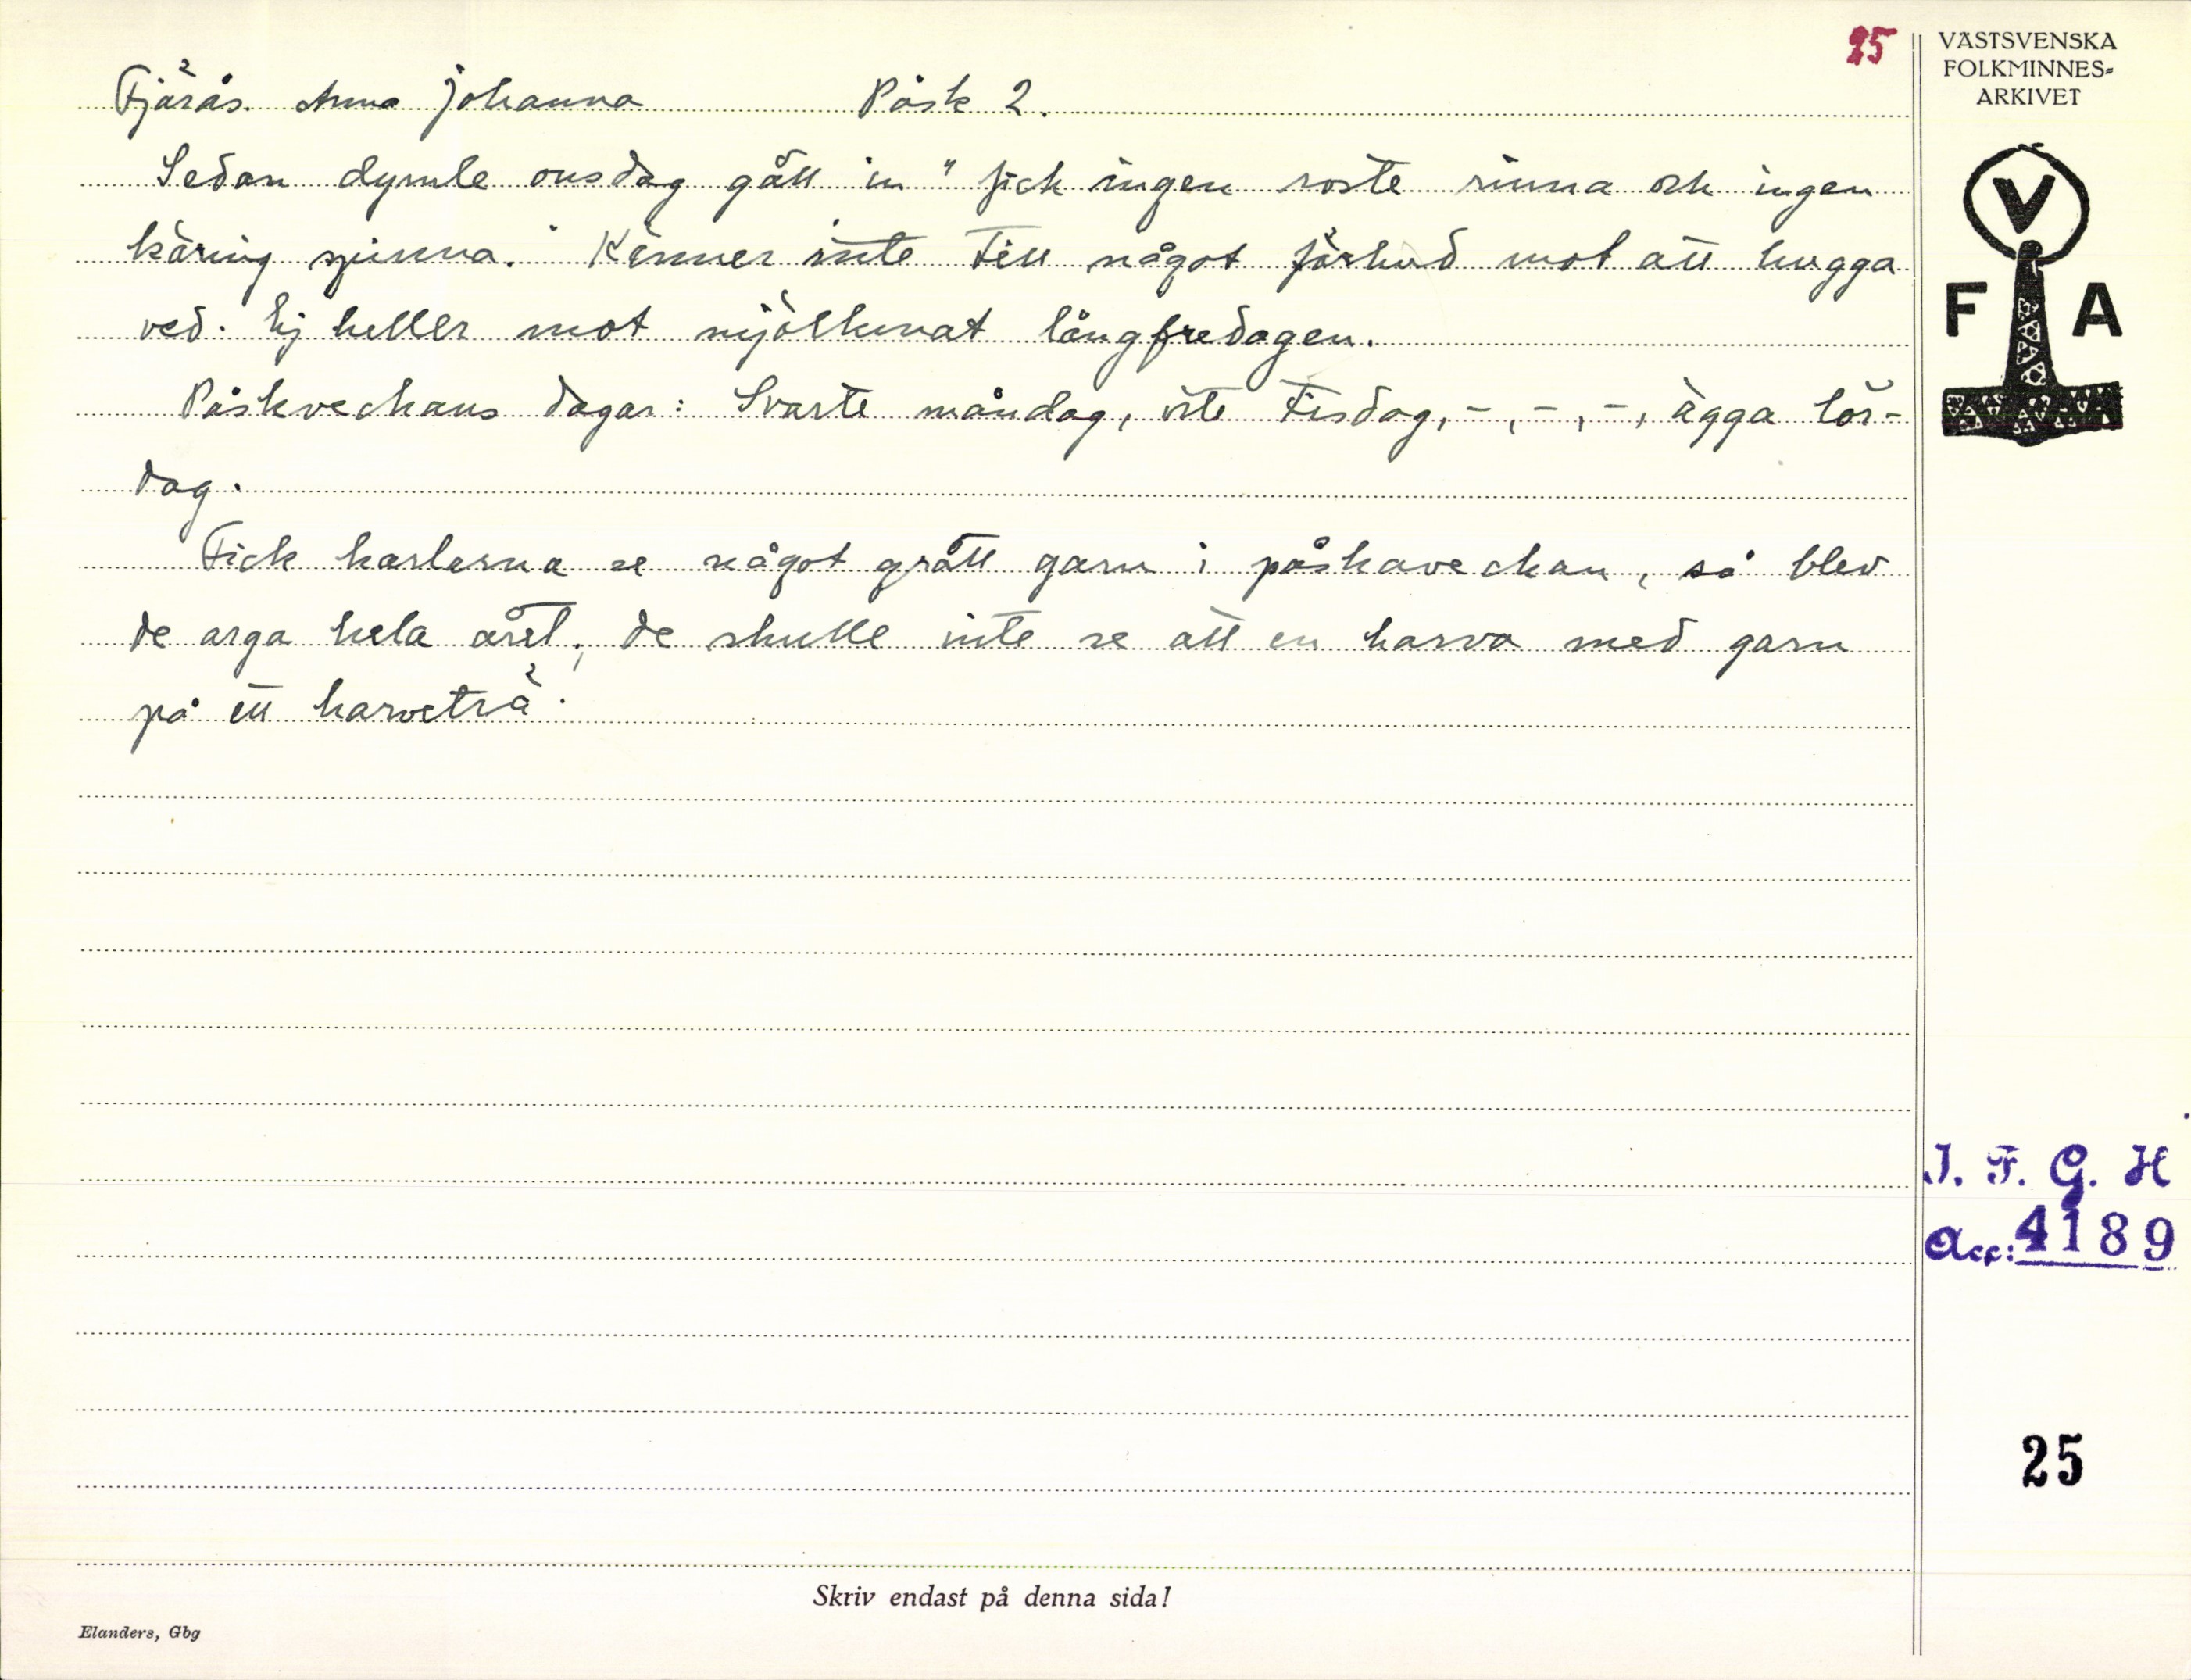 25
VÄSTSVENSKA
FOLKMINNES-
ARKIVET
Fjärås. Anna Johanna Påsk 2.
Sedan dymle onsdag gått in "fick ingen roste rinna och ingen
käring spinna." Känner inte till något förbud mot att hugga
ved. Ej heller mot mjölkmat långfredagen.
Påskveckans dagar: Svarte måndag, vite tisdag, -, -, -, ägga lör-
dag.
Fick karlarna se något grått garn i påskaveckan, så blev
de arga hela året, de skulle inte se att en harva med garn
på ett harveträ.
V
F A
I. F. G. H
Acc: 4189
25
Skriv endast på denna sida!
Elanders, Gbg